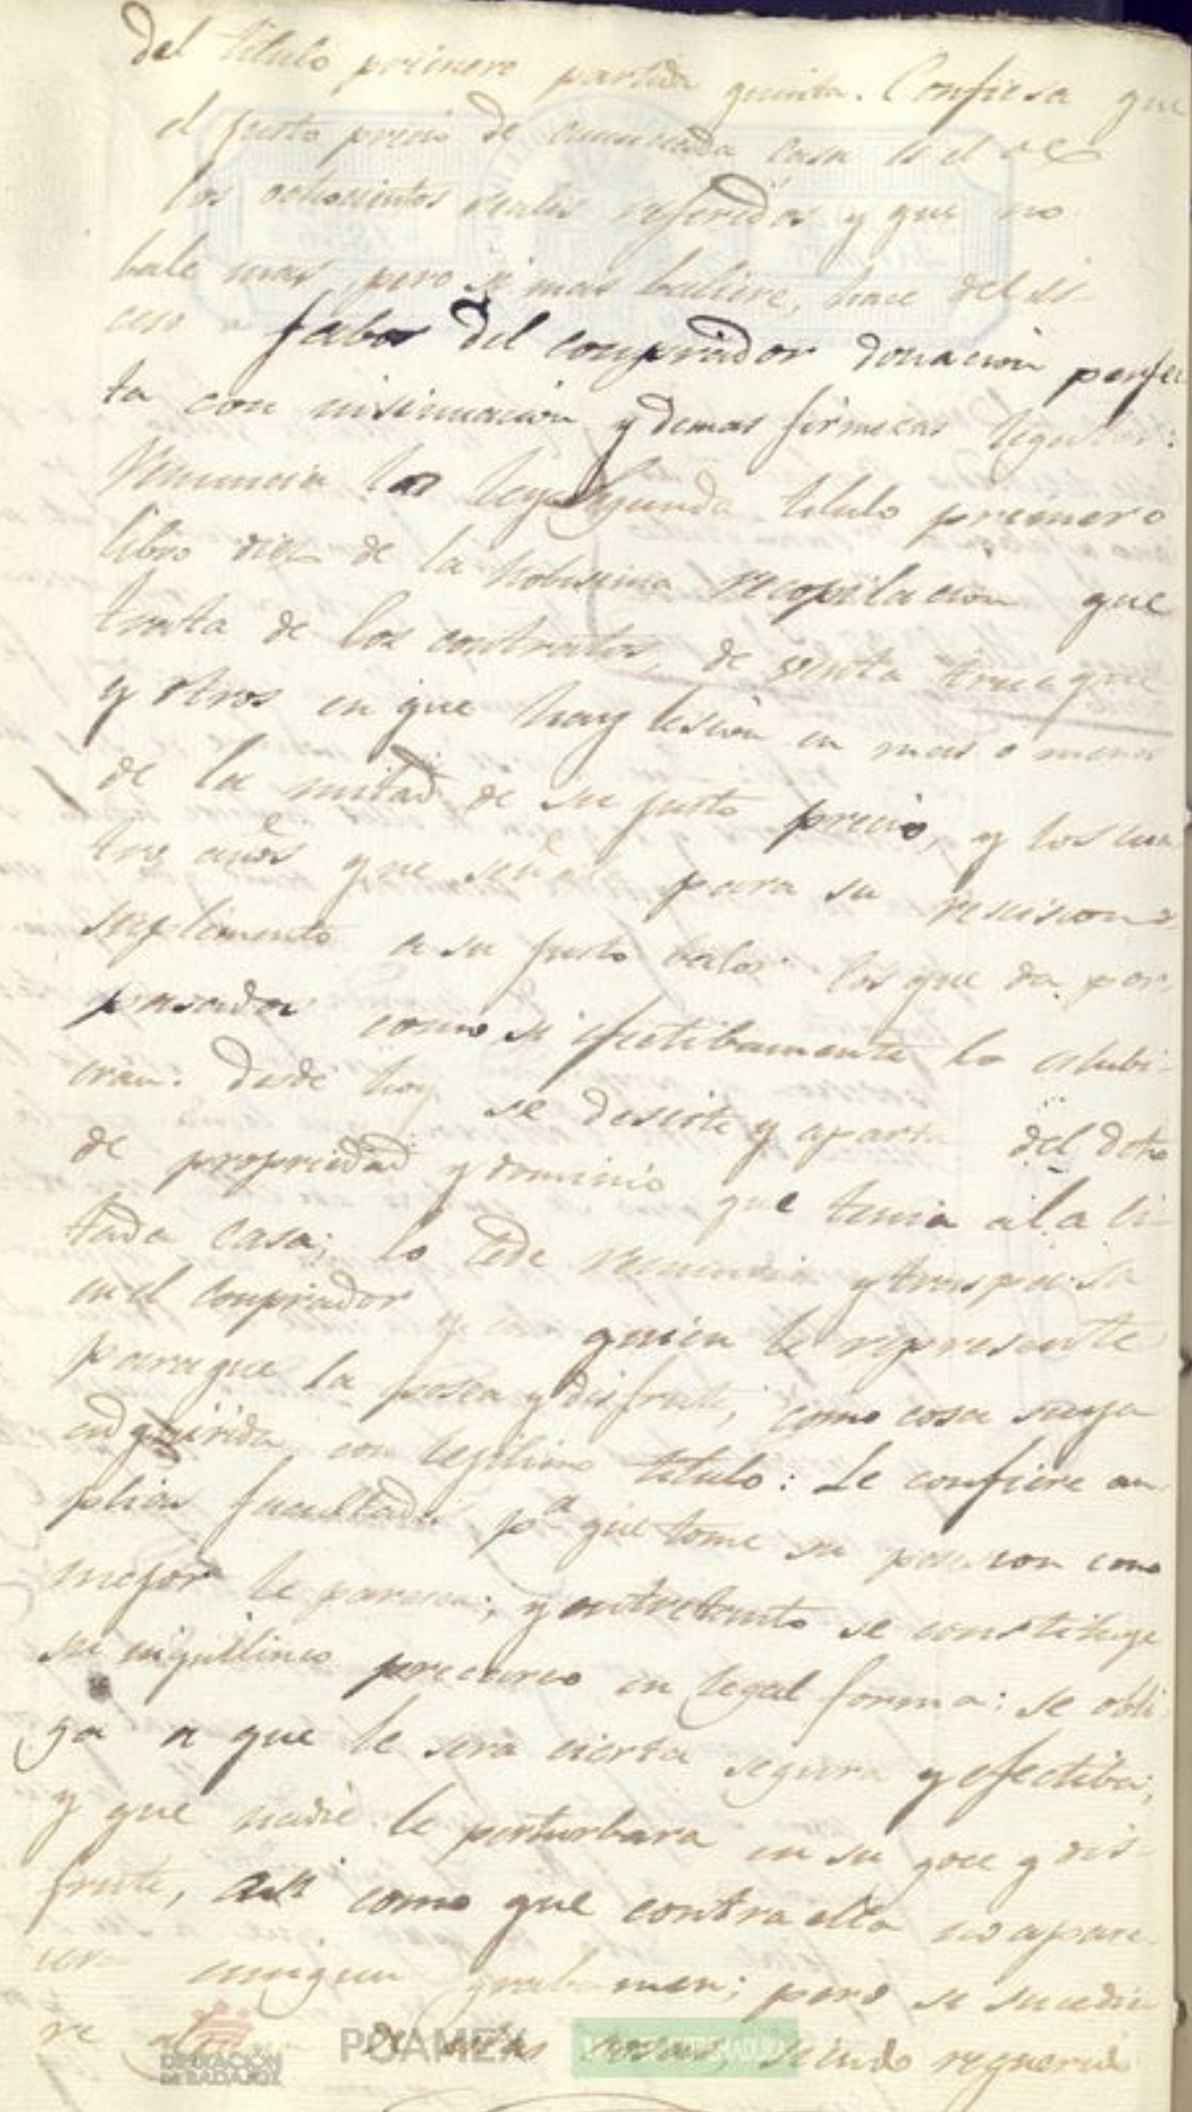 del titulo primero partida quinta. Confiesa que
el justo precio de anunciada casa es el de
los ochocientos reales referidos y que no
bale mas, pero si mas baliere, hace del es-
ceso a fabor del comprador donacion perfec
ta con insinuacion y demas firmezas legales:
Renuncia la ley segunda titulo primero
libro diez de la Nobisima recopilacion que
trata de los contratos de venta trueque
y otros en que hay lesion en mas o menos
de la mitad de su justo precio, y los cua
tro años que señala para su rescision o
suplemento a su justo valor los que da por
pasados como si efectibamente lo estubi-
eran. Desde hoy se desiste y aparta del dro
de propriedad y dominio que tenia a la ci-
tada casa; lo cede renuncia y traspasa
en el comprador y en quien le represente
para que la posea y disfrute, como cosa suya
adquirida con legitimo titulo: Le confiere am
plias facultades pa que tome su posesion como
mejor le paresca; y entretanto se constituye
su inquilino precareo en legal forma: se obli
ga a que le sera cierta segura y efectiba;
y que nadie le perturbara en su goce y dis-
frute, asi como que contra ella no apare
cera ningun grabamen; pero si sucedie
re de estas cosas, siendo requerido
DIPUTACIÓN
DE BADAJOZ
POAMEX